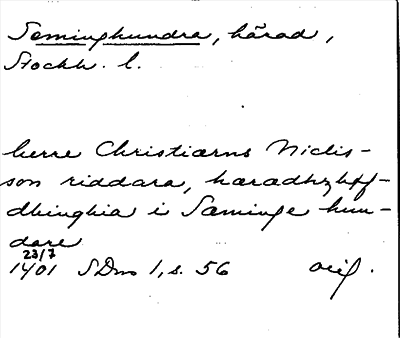 Seminghundra, härad,
Stockh. l.
herre Christierns Niclis-
son riddara, haradhzhff-
dhinghia i Saminge hun-
dare
23/7
1401 SDns 1, s. 56 orig.